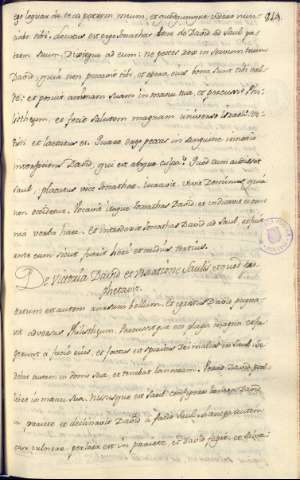 ego loquar de te ad patrem meum, et quodcumque videro nun-
ciabo tibi. locutus est ergo Jonathas bona de David ad Saul pa-
trem suum, Dixitque ad eum: ne pecces rex in servum tuum
David, quia non peccavit tibi, et opera eius bona sunt tibi val-
de: et posuit animam suam in manu sua, et percussit Phi-
listhæum, et fecit salutem magnam universo Israeli. Vi-
disti et lætatus es. Quare ergo peccas in sanguine innoxio
interficiens David, qui est absque culpa? Quod cum audisset
Saul, placatus voce Jonathæ, iuravit: vivit Dominus quia
non occidetur. Vocavit itaque Jonathas David et indicavit ei om-
nia verba hæc. Et introduxit Jonathas David ad Saul, et fuit
ante eum sicut fuit heri et nudius tertius.
De victoria David et Saulis, 
phetavit.
motum est autem rursum bellum. Et egressus David pugna-
vit adversus Philisthiim. Percussitque eos plaga magna et fu-
gerunt a facie eius, et factus est spiritus Dei malus in Saul. Se-
debat autem in domo sua, et tenebat lanceam: Porro David psal-
lebat in manu sua. Nisusque est Saul configere lancea David
in pariete et declinavit David a facie Saul: lancea autem
casso vulnere perlata est in parietem, et David fugit, et salva-